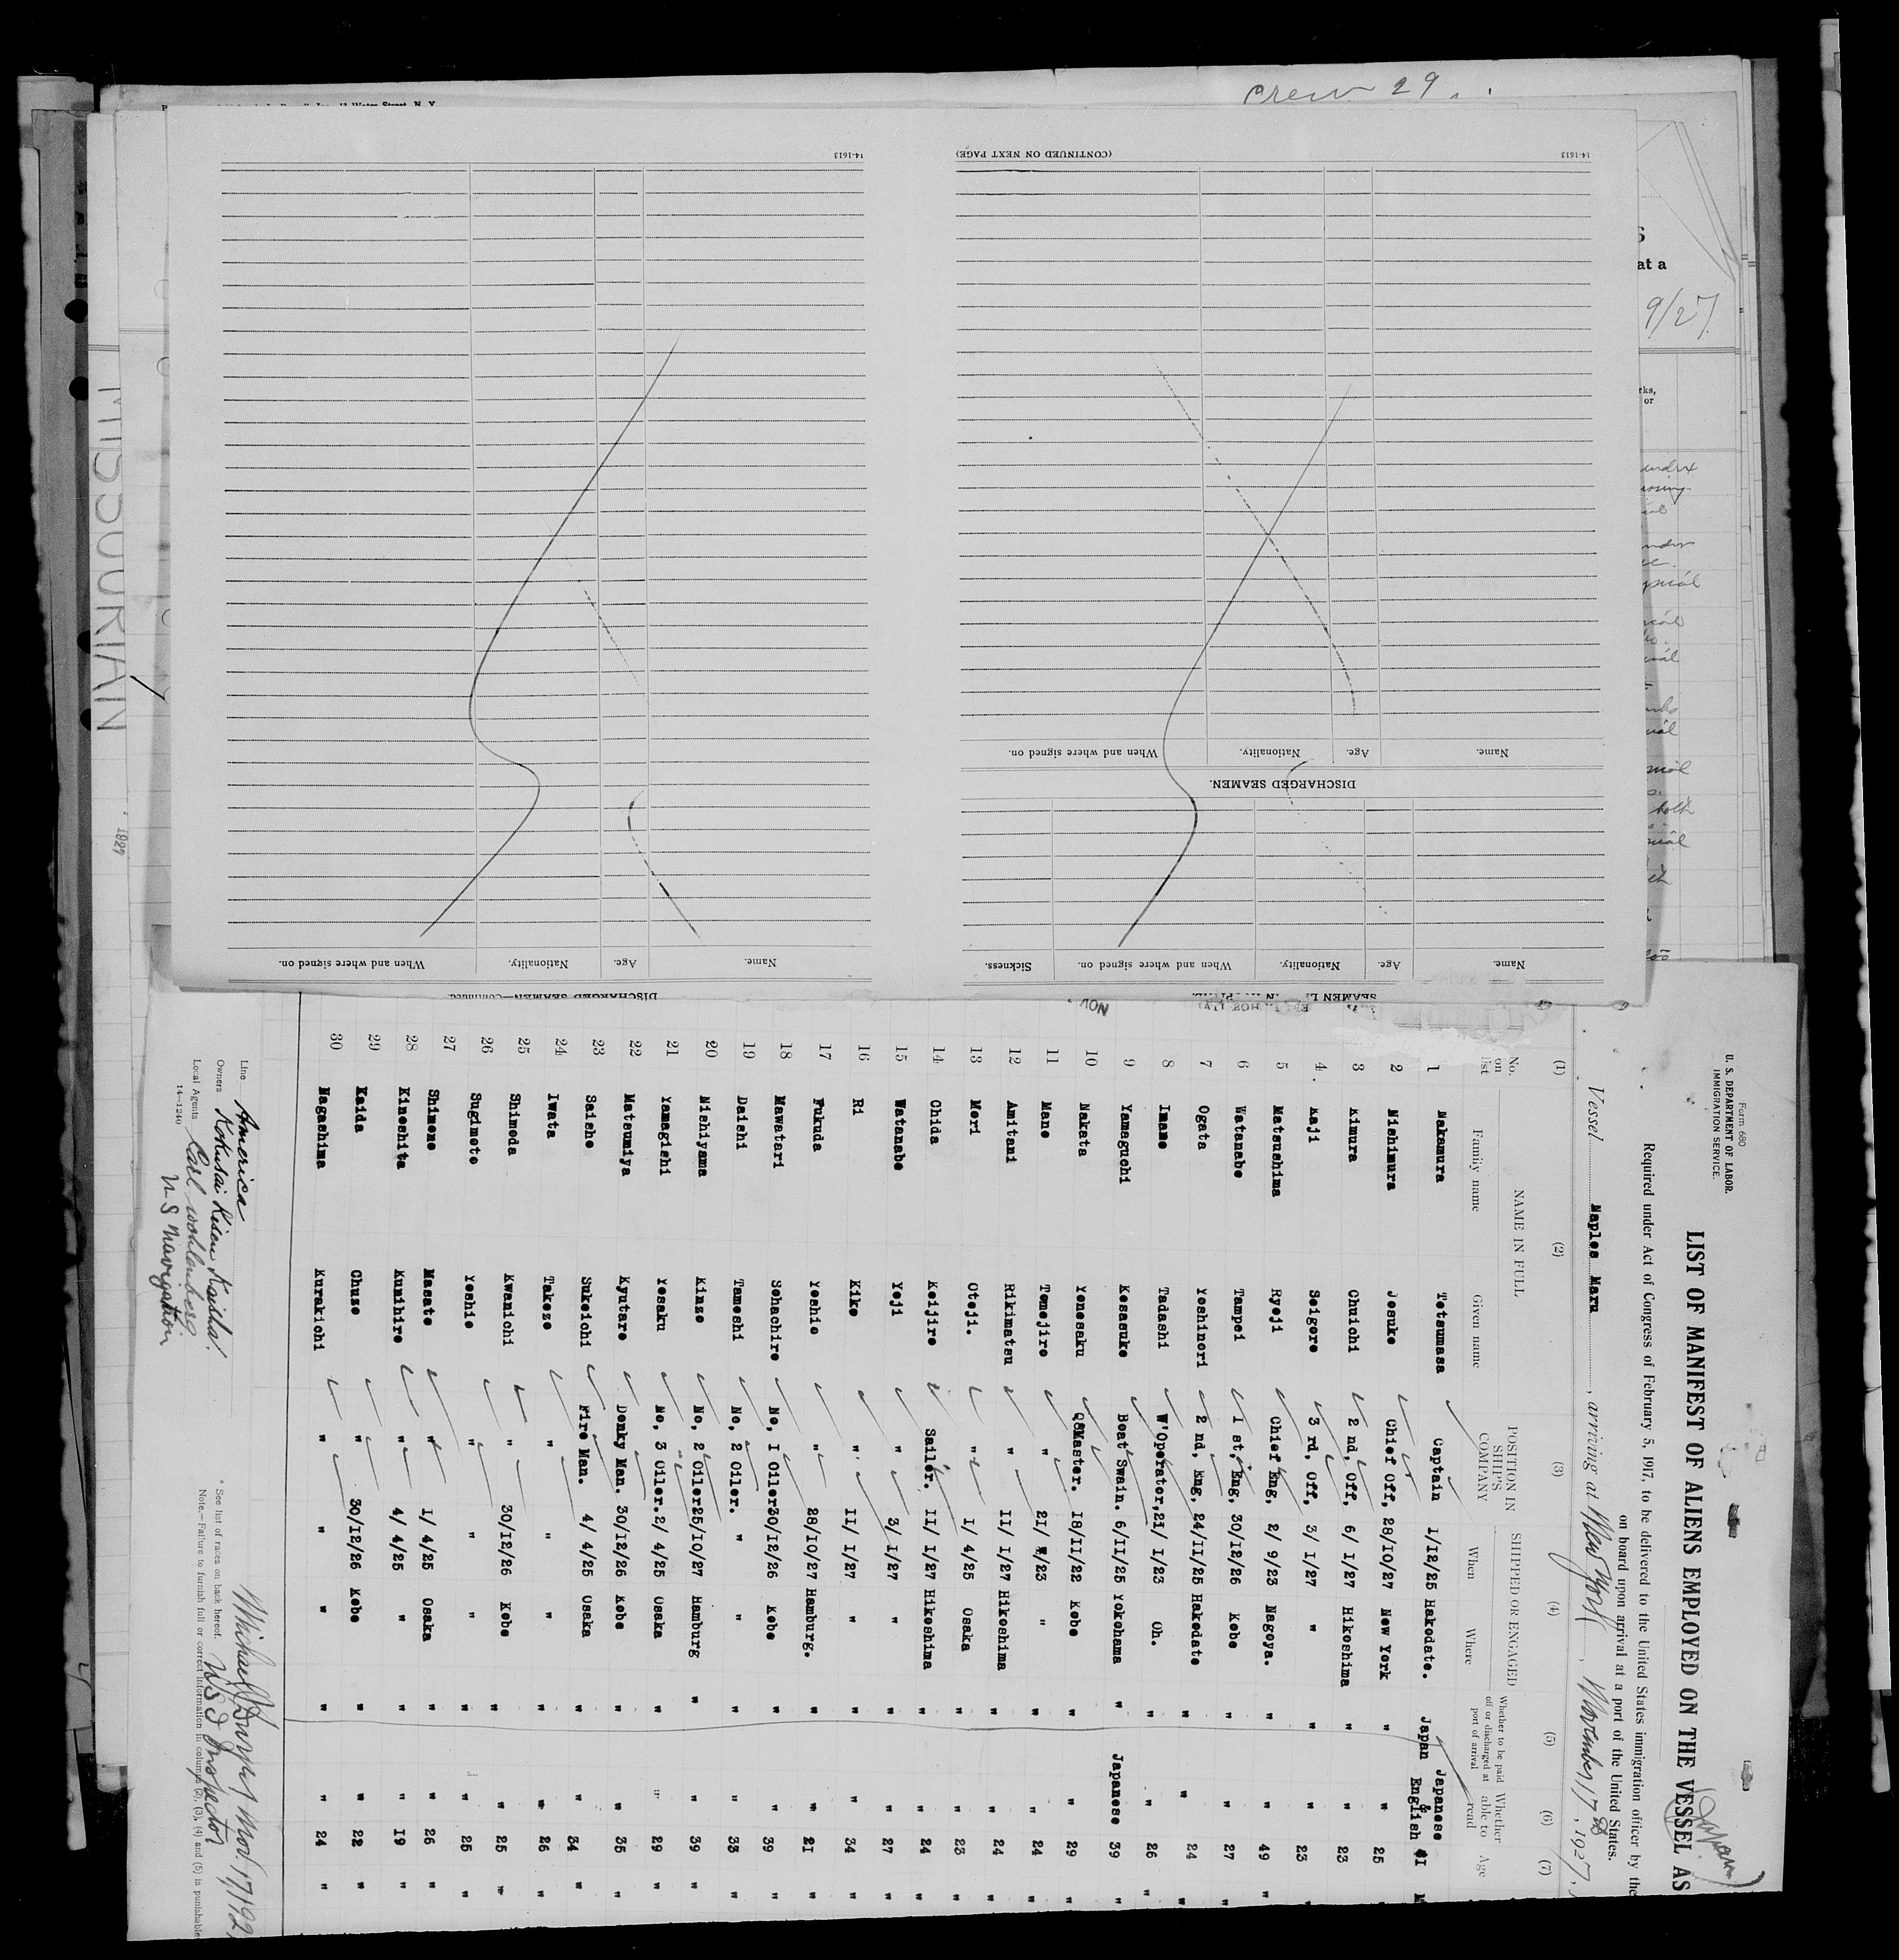 crew 29
14-1613
(CONTINUED ON NEXT PAGE)
14-1613
Name.
Age.
Nationality.
When and where signed on.
DISCHARGED SEAMEN.
Name.
Age.
Nationality.
When and where signed on.
Sickness.
Name.
Age.
Nationality.
When and where signed on.
DISCHARGED SEAMEN—Continued.
at a
9/27
1927
NOV
Form 680
U. S. DEPARTMENT OF LABOR
IMMIGRATION SERVICE
LIST OF MANIFEST OF ALIENS EMPLOYED ON THE VESSEL AS
(Japan)
Required under Act of Congress of February 5, 1917, to be delivered to the United States immigration officer by the
on board upon arrival at a port of the United States.
Vessel Naples Maru, arriving at New York, November 17th, 1927,
(1) (2) (3) (4) (5) (6) (7)
No. on list NAME IN FULL Family name Given name POSITION IN SHIP'S COMPANY SHIPPED OR ENGAGED When Where Whether to be paid off or discharged at port of arrival Whether able to read Age
1 Nakamura Tetsumasa Captain 1/12/25 Hakodate. Japan Japanese & English 41 M
2 Nishimura Josuke Chief Off, 28/10/27 New York " " 25
3 Kimura Chuichi 2 nd, Off, 6/ 1/27 Hikoshima " " 23 "
4 Kaji Seigoro 3 rd, Off, 3/ 1/27 " " " 23 "
5 Matsushima Ryoji Chief Eng, 2/ 9/23 Nagoya. " " 49 "
6 Watanabe Tampei 1 st, Eng, 30/12/26 Kobe " " 27 "
7 Ogata Yoshinori 2 nd, Eng, 24/11/25 Hakodate " " 24 "
8 Imamo Tadashi W'Operator, 21/ 1/23 Oh. " " 26 "
9 Yamaguchi Kosasuke Boat Swain. 6/11/25 Yokohama " Japanese 39 "
10 Nakata Yonosaku Q&Master. 18/11/22 Kobe " " 29 "
11 Mano Tomojiro " 21/ /23 " " " 24 "
12 Amitani Rikimatsu " 11/ 1/27 Hikoshima " " 24 "
13 Mori Otoji. " 1/ 4/25 Osaka " " 23 "
14 Chida Keijiro Sailor. 11/ 1/27 Hikoshima " " 24 "
15 Watanabe Yoji " 3/ 1/27 " " " 27 "
16 Ri Kiko " 11/ 1/27 " " " 34 "
17 Fukuda Yoshio " 28/10/27 Hamburg. " " 21 "
18 Mawatari Sohachiro No, 1 Oiler 30/12/26 Kobe " " 39 "
19 Daishi Tameshi No, 2 Oiler. " " " " 33 "
20 Nishiyama Kinzo No, 2 Oiler 25/10/27 Hamburg " " 39 "
21 Yamagishi Yosaku No, 3 Oiler. 2/ 4/25 Osaka " " 29 "
22 Matsumiya Kyutaro Donky Man. 30/12/26 Kobe " " 35 "
23 Saisho Sukeichi Fire Man. 4/ 4/25 Osaka " " 34 "
24 Iwata Takezo " " " " " 26 "
25 Shimoda Kwanichi " 30/12/26 Kobe " " 25 "
26 Sugimoto Yoshio " " " " " 25 "
27 Shimono Masato " 1/ 4/25 Osaka " " 26 "
28 Kinoshita Kunihiro " 4/ 4/25 " " " 19 "
29 Kaida Chuzo " 30/12/26 Kobe " " 22 "
30 Nagashima Kurakichi " " " " " 24 "
Line America
Owners Kokusai Kisen Kaisha
Local Agents Carl Wohlenberg
U S Navigation
14—1240
* See list of races on back hereof.
Note.—Failure to furnish full or correct information in columns (2), (3), (4) and (5) is punishable
Michael J Murphy Nov. 17/192
U S I Inspector